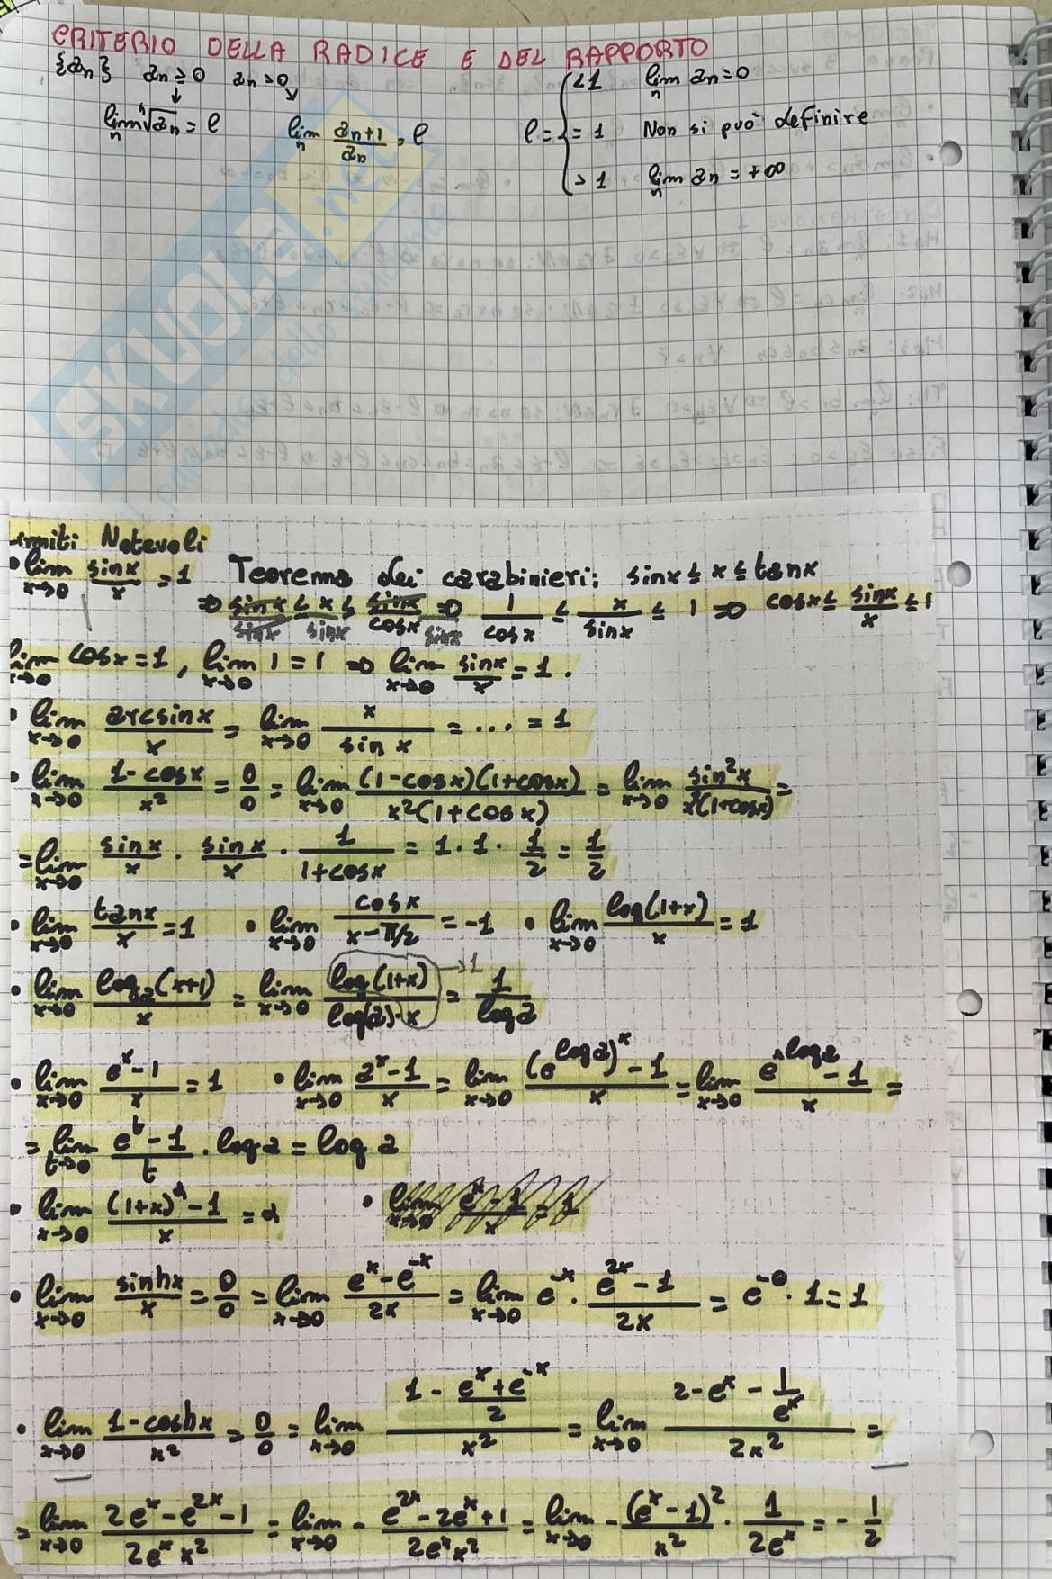 CRITERIO DELLA RADICE E DEL RAPPORTO
{an} an ≥ 0 an > 0
lim n ⁿ√an = l lim n an+1/an = l
l = { < 1 lim n an = 0
= 1 Non si può definire
> 1 lim n an = +∞
SKUOLA.net
Limiti Notevoli
• lim x→0 sinx/x = 1 Teorema dei carabinieri: sinx ≤ x ≤ tanx
⇒ sinx/sinx ≤ x/sinx ≤ sinx/cosx sinx ⇒ 1/cosx ≤ x/sinx ≤ 1 ⇒ cosx ≤ sinx/x ≤ 1
lim x→0 cosx = 1, lim x→0 1 = 1 ⇒ lim x→0 sinx/x = 1.
• lim x→0 arcsinx/x = lim x→0 x/sin x = ... = 1
• lim x→0 1-cosx/x² = 0/0 = lim x→0 (1-cosx)(1+cosx)/x²(1+cosx) = lim x→0 sin²x/x²(1+cosx) =
= lim x→0 sinx/x · sinx/x · 1/1+cosx = 1·1· 1/2 = 1/2
• lim x→0 tanx/x = 1 • lim x→0 cosx/x-π/2 = -1 • lim x→0 log(1+x)/x = 1
• lim x→0 loga(x+1)/x = lim x→0 log(1+x)/log(a)·x →1 = 1/loga
• lim x→0 eˣ-1/x = 1 • lim x→0 aˣ-1/x = lim x→0 (e^loga)ˣ-1/x = lim x→0 e^x loga -1/x =
= lim t→0 eᵗ-1/t · loga = log a
• lim x→0 (1+x)^α -1/x = α • lim x→0 eˣ-1/x = 1
• lim x→0 sinhx/x = 0/0 = lim x→0 eˣ-e⁻ˣ/2x = lim x→0 e⁻ˣ · e²ˣ-1/2x = e⁻⁰·1 = 1
• lim x→0 1-coshx/x² = 0/0 = lim x→0 1 - eˣ+e⁻ˣ/2 / x² = lim x→0 2-eˣ- 1/eˣ / 2x² =
= lim x→0 2eˣ-e²ˣ-1/2eˣx² = lim x→0 - e²ˣ-2eˣ+1/2eˣx² = lim x→0 - (eˣ-1)²/x² · 1/2eˣ = - 1/2